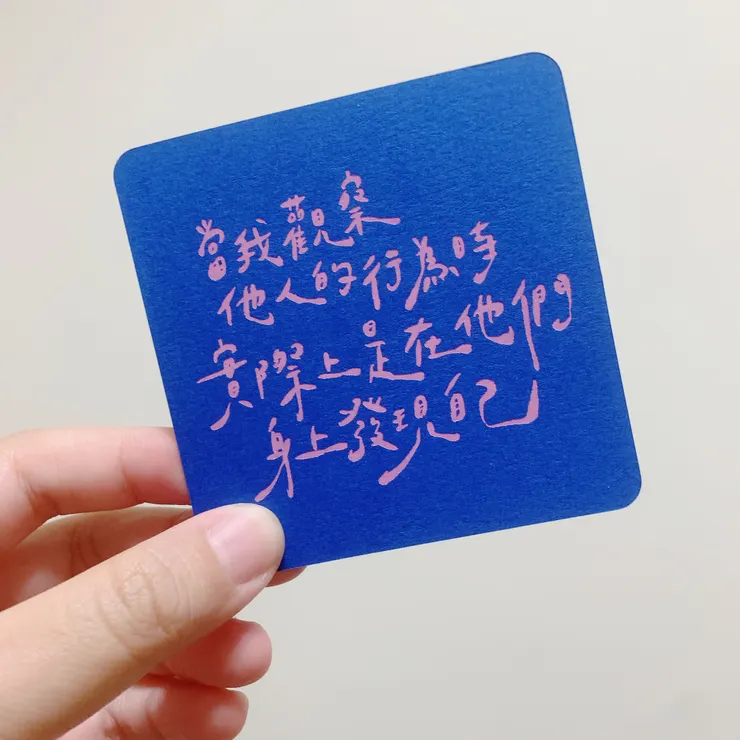 當我觀察
他人的行為時
實際上是在他們
身上發現自己